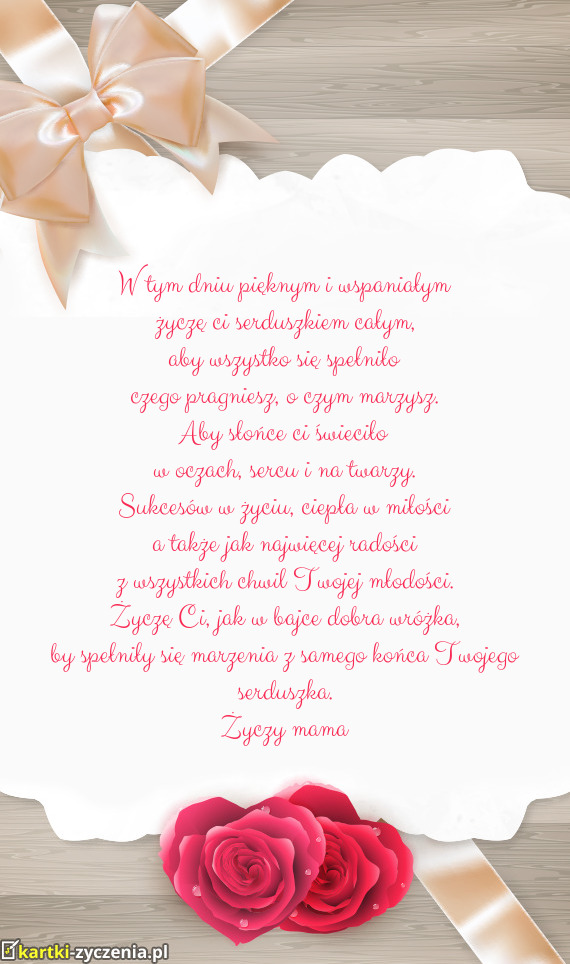 W tym dniu pięknym i wspaniałym
życzę ci serduszkiem całym,
aby wszystko się spełniło
czego pragniesz, o czym marzysz.
Aby słońce ci świeciło
w oczach, sercu i na twarzy.
Sukcesów w życiu, ciepła w miłości
a także jak najwięcej radości
z wszystkich chwil Twojej młodości.
Życzę Ci, jak w bajce dobra wróżka,
by spełniły się marzenia z samego końca Twojego
serduszka.
Życzy mama
kartki-zyczenia.pl